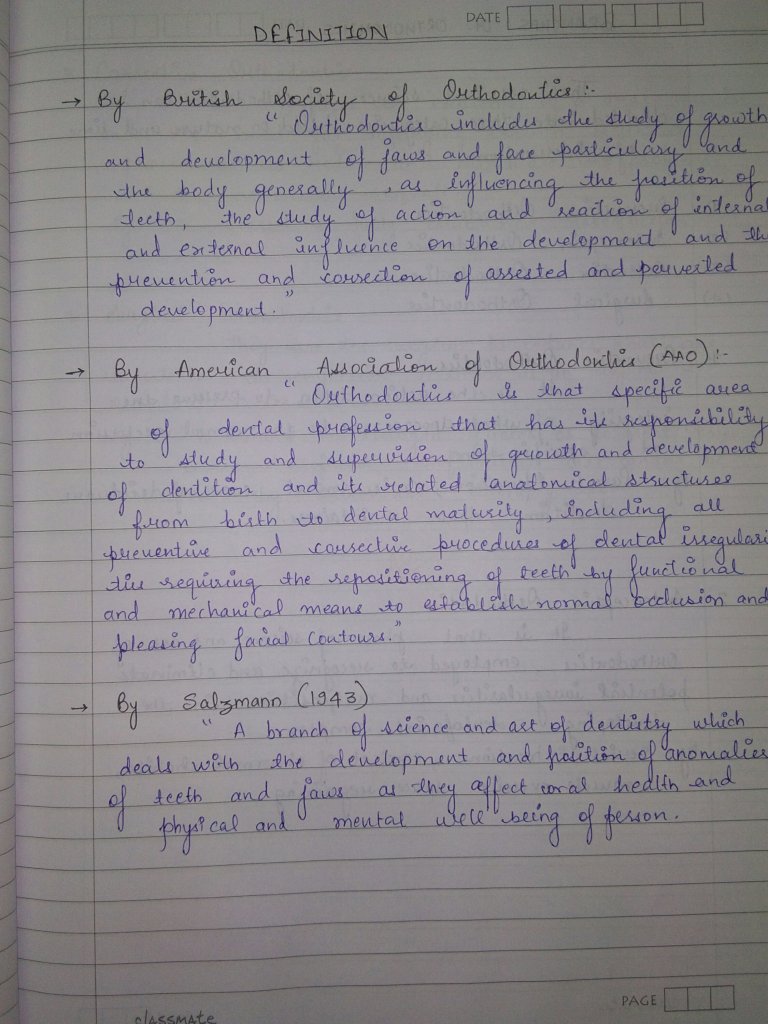 DATE
DEFINITION
→ By British Society of Orthodontics :-
" Orthodontics includes the study of growth
and development of jaws and face particulary and
the body generally , as influencing the position of
teeth, the study of action and reaction of internal
and external influence on the development and th
prevention and correction of arrested and perverted
development."
→ By American Association of Orthodontics (AAO) :-
" Orthodontics is that specific area
of dental profession that has its responsibility
to study and supervision of growth and development
of dentition and its related anatomical structures
from birth to dental maturity , including all
preventive and corrective procedures of dental irregulari
ties requiring the repositioning of teeth by functional
and mechanical means to establish normal occlusion and
pleasing facial contours."
→ By Salzmann (1943)
" A branch of science and art of dentistry which
deals with the development and position of anomalies
of teeth and jaws as they affect oral health and
physical and mental well being of person.
PAGE
classmate